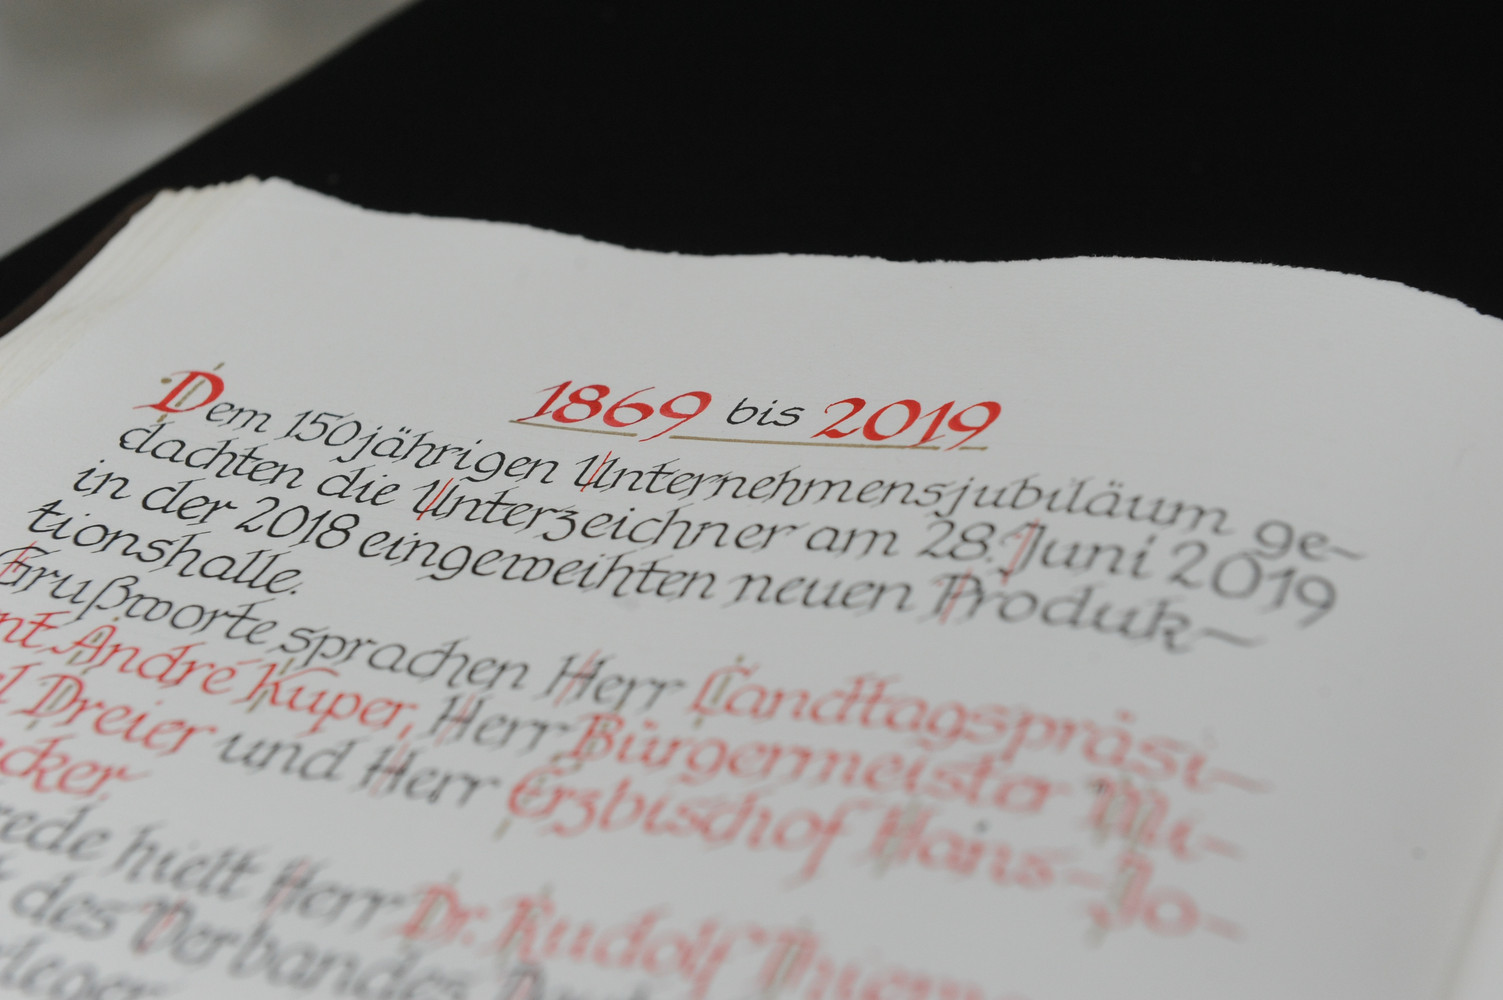 1869 bis 2019
Dem 150jährigen Unternehmensjubiläum ge-
dachten die Unterzeichner am 28. Juni 2019
in der 2018 eingeweihten neuen Produk-
tionshalle.
Grußworte sprachen Herr Landtagspräsi-
nt André Kuper, Herr Bürgermeister Mi-
l Dreier und Herr Erzbischof Hans-Jo-
cker
rede hielt Herr Dr. Rudolf Thiem
des Verbandes
rleger